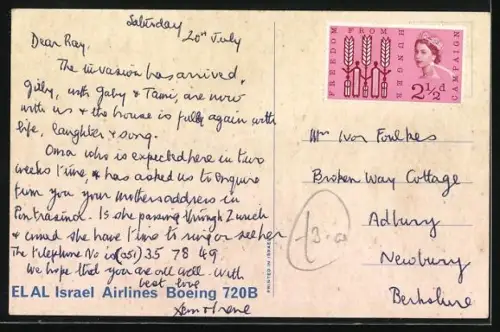 Saturday
20th July
Dear Ray,
The invasion has arrived.
Gilly, with Gaby & Tami, are now
with us & the house is fully again with
life, laughter & song.
Oma who is expected here in two
weeks time, & has asked us to enquire
from you your mothers address in
Is she passing through Zurich
& could she have time to ring or see her
The telephone No is (051) 35 78 49
We hope that you are all well. With
best love
EL AL Israel Airlines Boeing 720B
PRINTED IN ISRAEL
FREEDOM FROM HUNGER CAMPAIGN
2½d
Mr Ivor Foulkes
Broken Way Cottage
Adbury
Newbury
Berkshire